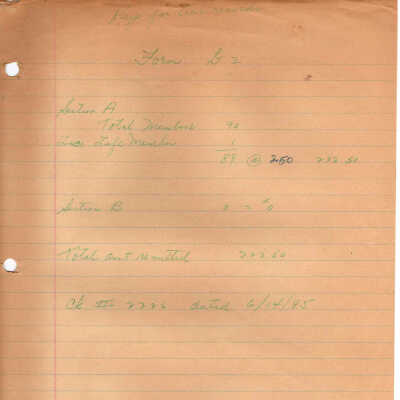 Keep for our records
Form G 2
Section A
Total Members 90
Less Life Member 1
89 @ 250 222.50
Section B 0 0 $0
Total amt remitted 222.50
Ck # 2226 dated 6/14/95